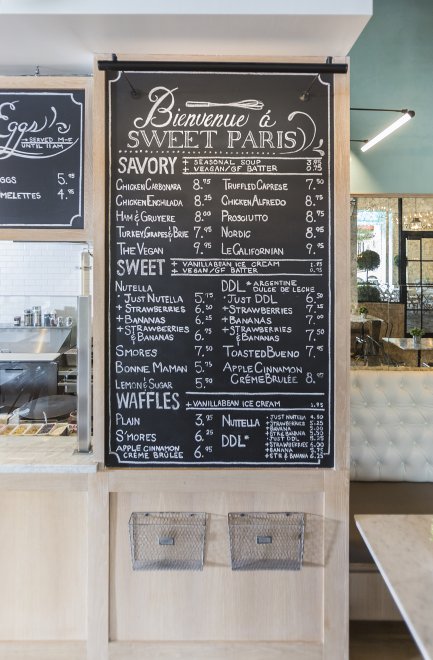 Eggs
→ SERVED M-F
UNTIL 11AM
EGGS 5.95
OMELETTES 4.95
Bienvenue á
SWEET PARIS
SAVORY + SEASONAL SOUP 3.95
+ VEAGAN/GF BATTER 0.75
CHICKEN CARBONARA 8.95
CHICKEN ENCHILADA 8.25
HAM & GRUYERE 8.00
TURKEY, GRAPES & BRIE 7.95
THE VEGAN 9.95
TRUFFLED CAPRESE 7.50
CHICKEN ALFREDO 8.75
PROSCIUTTO 8.95
NORDIC 8.95
LE CALIFORNIAN 9.95
SWEET + VANILLABEAN ICE CREAM 1.95
+ VEGAN/GF BATTER 0.75
NUTELLA
• JUST NUTELLA 5.75
+ STRAWBERRIES 6.50
+ BANANAS 6.25
+ STRAWBERRIES & BANANAS 6.95
SMORES 7.50
BONNE MAMAN 5.75
LEMON & SUGAR 5.50
DDL * ARGENTINE DULCE DE LECHE
• JUST DDL 6.50
+ STRAWBERRIES 7.25
+ BANANAS 7.00
+ STRAWBERRIES & BANANAS 7.50
TOASTED BUENO 7.95
APPLE CINNAMON
CRÈME BRÛLÉE 8.95
WAFFLES + VANILLABEAN ICE CREAM 1.95
PLAIN 3.95
S'MORES 6.25
APPLE CINNAMON
CRÈME BRÛLÉE 6.95
NUTELLA • JUST NUTELLA 4.50
+ STRAWBERRIES 5.25
+ BANANA 5.00
+ STR & BANANA 5.50
DDL* • JUST DDL 5.25
+ STRAWBERRIES 6.00
+ BANANA 5.75
+ STR & BANANA 6.25